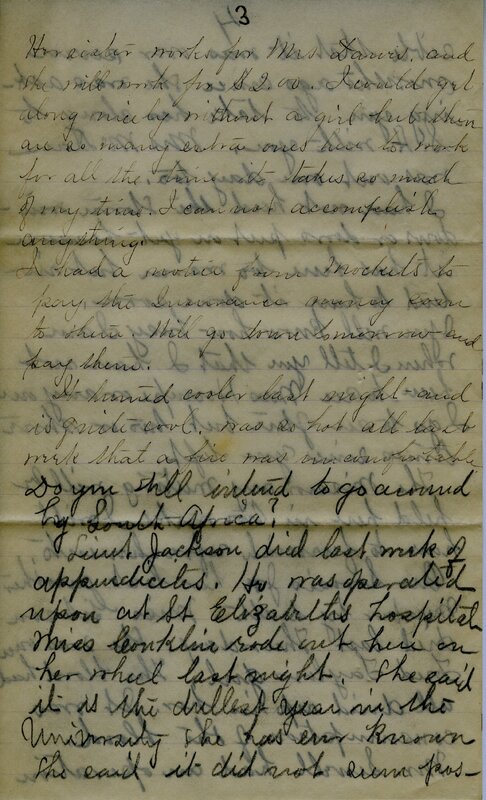 3
Her sister works for Mrs Dawes. and
she will work for $2.00. I could get
along nicely without a girl but then
are so many extra ones here to work
for all the time it takes so much
of my time. I can not accomplish
anything.
I had a notice from Mockets to
pay the Insurance money over
to them. Will go down tomorrow and
pay them.
It turned cooler last night and
is quite cool. was so hot all last
week that a fire was uncomfortable
Do you still intend to go around
by South Africa?
Lieut Jackson died last week of
appendicitis. He was operated
upon at St Elizabeths hospital
Miss Conklin rode out here on
her wheel last night. She said
it is the dullest year in the
University she has ever known
She said it did not seem pos-